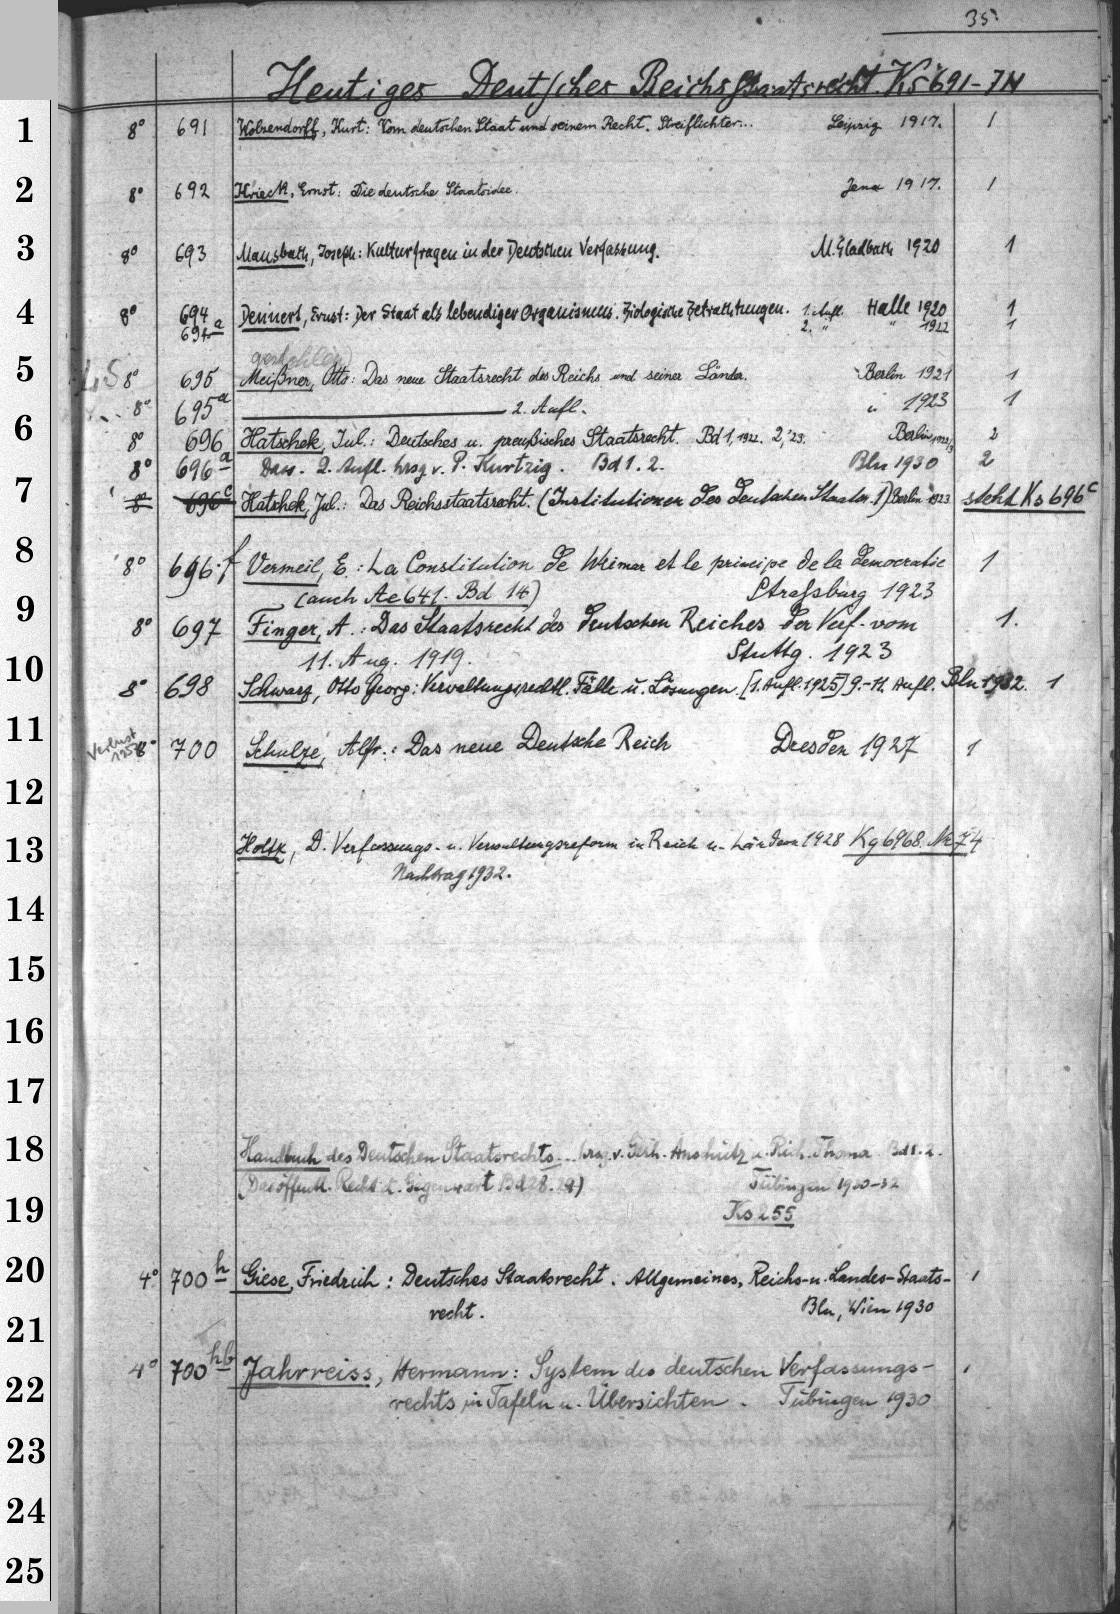 35
Heutiges Deutsches Reichsstaatsrecht. Ks 691-711
1
8° 691 Wolzendorff, Kurt: Vom deutschen Staat und seinem Recht. Streiflichter... Leipzig 1917. 1
2
8° 692 Krieck, Ernst: Die deutsche Staatsidee. Jena 1917. 1
3
8° 693 Mausbach, Joseph: Kulturfragen in der Deutschen Verfassung. M. Gladbach 1920 1
4
8° 694 Dennert, Ernst: Der Staat als lebendiger Organismus. Biologische Betrachtungen. 1. Aufl. Halle 1920 1
694a 2. " " 1922 1
gestohlen
5
LS 8° 695 Meißner, Otto: Das neue Staatsrecht des Reichs und seiner Länder. Berlin 1921 1
8° 695a 2. Aufl. " 1923 1
6
8° 696 Hatschek, Jul.: Deutsches u. preußisches Staatsrecht. Bd 1, 1922. 2,'23. Berlin 2
8° 696a Dass. 2. Aufl. hrsg v. P. Kurtzig. Bd 1. 2. Bln 1930 2
7
8° 696c Hatschek, Jul.: Das Reichsstaatsrecht. (Institutionen des deutschen Staates. 1) Berlin 1923 steht Ks 696c
8
8° 696f Vermeil, E.: La Constitution de Weimar et le principe de la democratie 1
(auch Ae 641. Bd 14) Straßburg 1923
9
8° 697 Finger, A.: Das Staatsrecht des deutschen Reiches der Verf. vom 1.
11. Aug. 1919. Stuttg. 1923
10
8° 698 Schwarz, Otto Georg: Verwaltungsrechtl. Fälle u. Lösungen. [1. Aufl. 1925] 9.-11. Aufl. Bln 1932. 1
11
Verlust
8° 700 Schulze, Alfr.: Das neue Deutsche Reich Dresden 1927 1
12
13
Holtz, D. Verfassungs- u. Verwaltungsreform in Reich u. Ländern 1928 Kg 6968. Nr 74
Nachtrag 1932.
14
15
16
17
18
Handbuch des Deutschen Staatsrechts... hrsg. v. Gerh. Anschütz u. Rich. Thoma Bd 1. 2.
(Das öffentl. Recht d. Gegenwart Bd 28. 29) Tübingen 1930-32
19
Ks 255
20
4° 700h Giese, Friedrich: Deutsches Staatsrecht. Allgemeines, Reichs- u. Landes-Staats- 1
recht. Bln, Wien 1930
21
4° 700hb Jahrreiss, Hermann: System des deutschen Verfassungs-
22
rechts in Tafeln u. Übersichten. Tübingen 1930
23
24
25